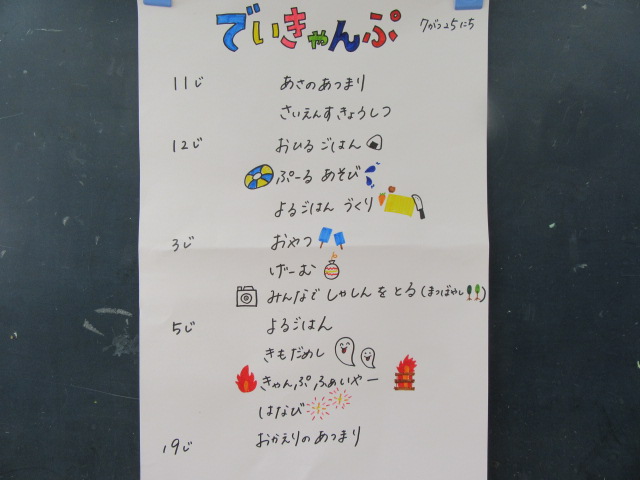 でいきゃんぷ
7がつ25にち
11じ あさのあつまり
さいえんすきょうしつ
12じ おひるごはん
ぷーる あそび
よるごはん づくり
3じ おやつ
げーむ
みんなで しゃしんをとる(まつばやし)
5じ よるごはん
きもだめし
きゃんぷふぁいやー
はなび
19じ おかえりのあつまり